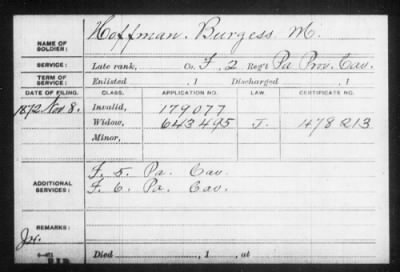 NAME OF SOLDIER: Hoffman. Burgess M.
SERVICE: Late rank, Co. F, 2 Reg't Pa Prov. Cav.
TERM OF SERVICE: Enlisted , 1 Discharged , 1
DATE OF FILING. CLASS. APPLICATION NO. LAW. CERTIFICATE NO.
1872 Nov 8. Invalid, 179077
Widow, 643495 J. 478213
Minor,
ADDITIONAL SERVICES: F. 5. Pa. Cav.
F. 6. Pa. Cav.
REMARKS:
Died , 1 , at